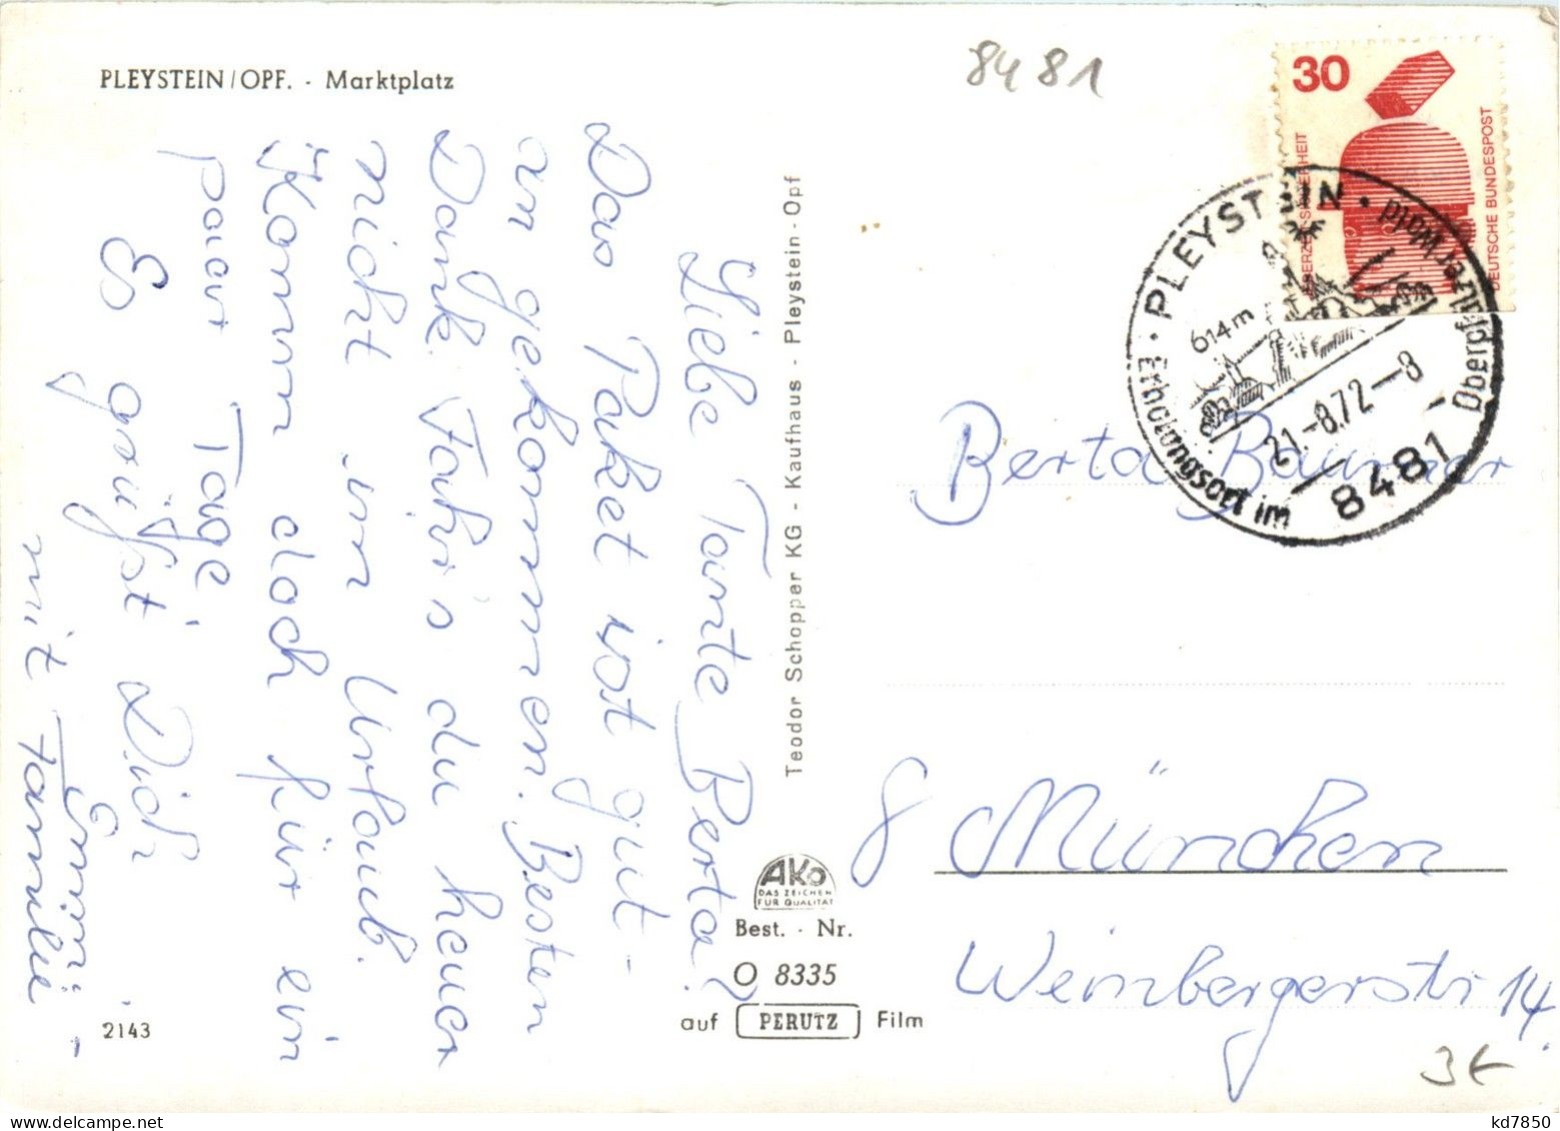 PLEYSTEIN/OPF. - Marktplatz
8481
30
DEUTSCHE BUNDESPOST
PLEYSTEIN
614 m
21.-8.72-8
8481
Erholungsort im Oberpfälzer Wald
Liebe Tante Berta!
Das Paket ist gut
angekommen. Besten
Dank. Fahr's du heuer
nicht in Urlaub.
Komm doch für ein
paar Tage
Es grüßt Dich
Emmi
mit Familie
Teodor Schopper KG - Kaufhaus - Pleystein-Opf
AKO
DAS ZEICHEN
FÜR QUALITÄT
Best. - Nr.
O 8335
auf PERUTZ Film
2143
Berta
8 München
Weinbergerstr 14
3€
kd7850